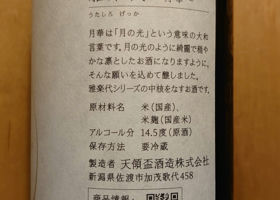 うたしろ げっか
月華は「月の光」という意味の大和
言葉です。月の光のように綺麗で穏や
かな凛としたお酒になりますように、
そんな願いを込めて醸しました。
雅楽代シリーズの中核をなすお酒です。
原材料名 米(国産)、
米麹(国産米)
アルコール分 14.5度(原酒)
保存方法 要冷蔵
製造者 天領盃酒造株式会社
新潟県佐渡市加茂歌代458
商品情報